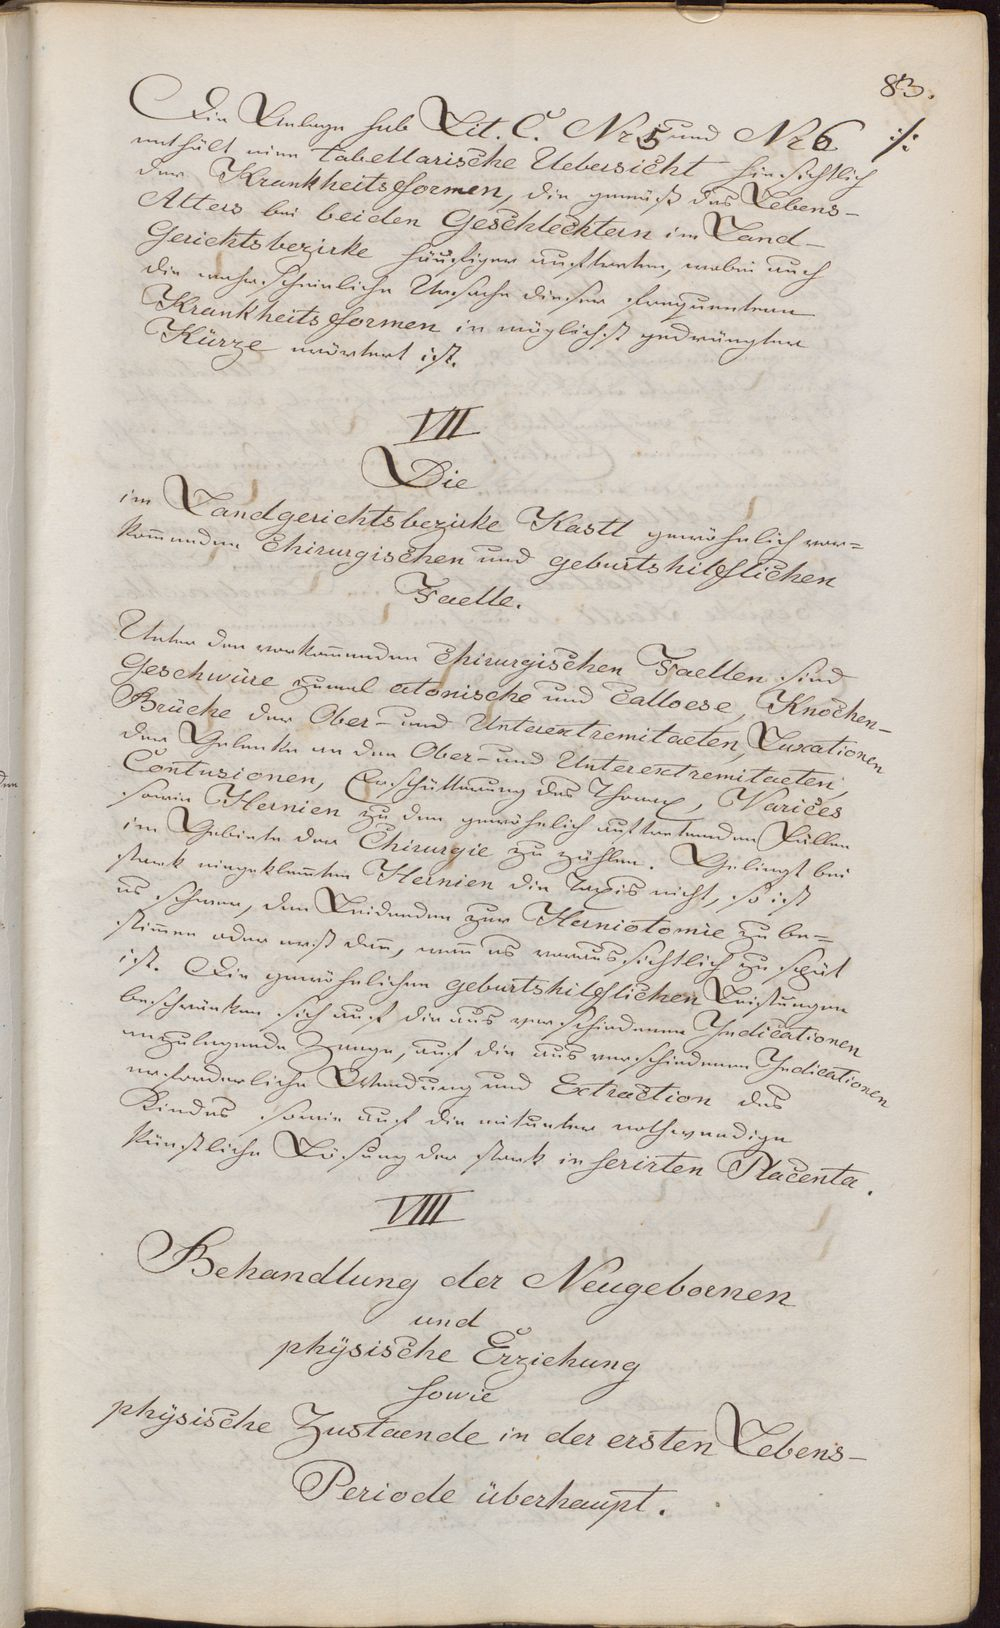 83.
Die Anlage sub Lit. C. Nr 5 und Nr 6 ·/.
enthält eine tabellarische Uebersicht hinsichtlich
der Krankheitsformen, die gemäß des Lebens-
Alters bei beiden Geschlechtern im Land-
Gerichtsbezirke häufiger auftreten, wobei auch
die wahrscheinliche Ursache dieser frequentern
Krankheitsformen in möglichst gedrängter
Kürze erörtert ist.
VII
Die
im Landgerichtsbezirke Kastl gewöhnlich vor-
kommenden chirurgischen und geburtshilflichen
Faelle.
Unter den vorkommenden chirurgischen Faellen sind
Geschwüre zumal atonische und calloese, Knochen-
Brüche der Ober- und Unterextremitaeten, Luxationen
der Gelenke an den Ober- und Unterextremitaeten,
Contusionen, Erschütterung des Thorax, Varices
sowie Hernien zu den gewöhnlich auftretenden Fällen
im Gebiete der Chirurgie zu zählen. Gelingt bei
stark eingeklemten Hernien die Taxis nicht, so ist
es schwer, den Leidenden zur Herniotomie zu be-
stimen oder erst dann, wenn es voraussichtlich zu spät
ist. Die gewöhnlichen geburtshilflichen Leistungen
beschränken sich auf die aus verschiedenen Indicationen
anzulegende Zange, auf die aus verschiedenen Indicationen
erforderliche Wendung und Extraction des
Kindes sowie auf die mitunter nothwendige
künstliche Lösung der stark inserirten Placenta.
VIII
Behandlung der Neugebornen
und
physische Erziehung
sowie
physische Zustaende in der ersten Lebens-
Periode überhaupt.